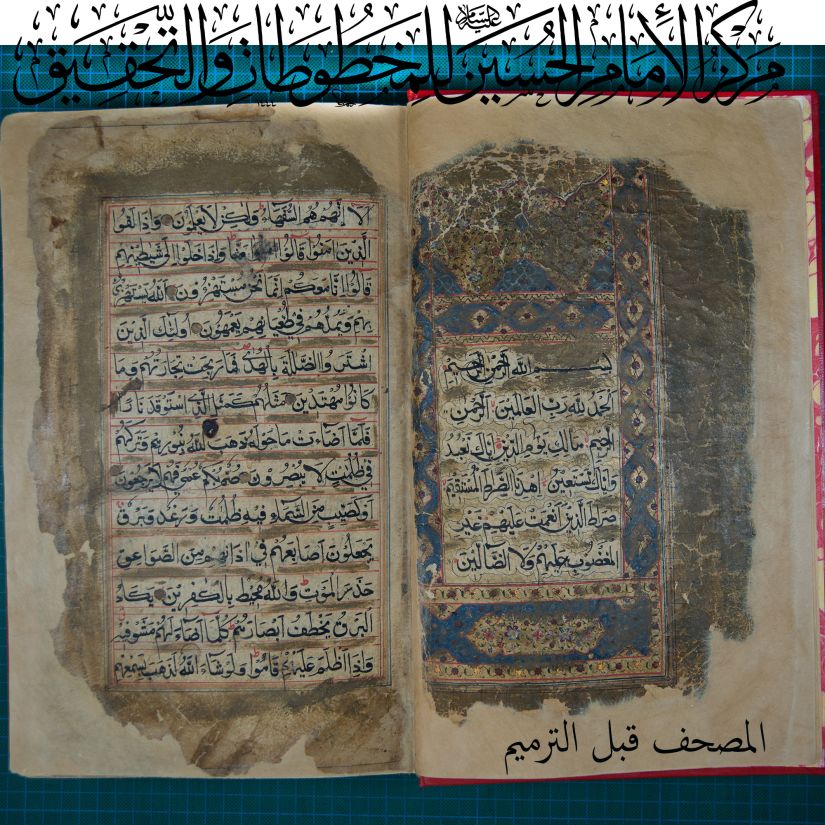 مركز الإمام الحسين عليه السلام للمخطوطات والتحقيق
بسم الله الرحمن الرحيم
الحمد لله رب العالمين الرحمن
الرحيم مالك يوم الدين اياك نعبد
واياك نستعين اهدنا الصراط المستقيم
صراط الذين انعمت عليهم غير
المغضوب عليهم ولا الضالين
الا انهم هم السفهاء ولكن لا يعلمون واذا لقوا
الذين امنوا قالوا امنا واذا خلوا الى شيطينهم
قالوا انا معكم انما نحن مستهزؤن الله يستهزئ
بهم ويمدهم في طغيانهم يعمهون اولئك الذين
اشتروا الضللة بالهدى فما ربحت تجارتهم وما
كانوا مهتدين مثلهم كمثل الذي استوقد نارا
فلما اضاءت ما حوله ذهب الله بنورهم وتركهم
في ظلمت لا يبصرون صم بكم عمي فهم لا يرجعون
او كصيب من السماء فيه ظلمت ورعد وبرق
يجعلون اصابعهم في اذانهم من الصواعق
حذر الموت والله محيط بالكفرين يكاد
البرق يخطف ابصارهم كلما اضاء لهم مشوا فيه
واذا اظلم عليهم قاموا ولو شاء الله لذهب بسمعهم
المصحف قبل الترميم